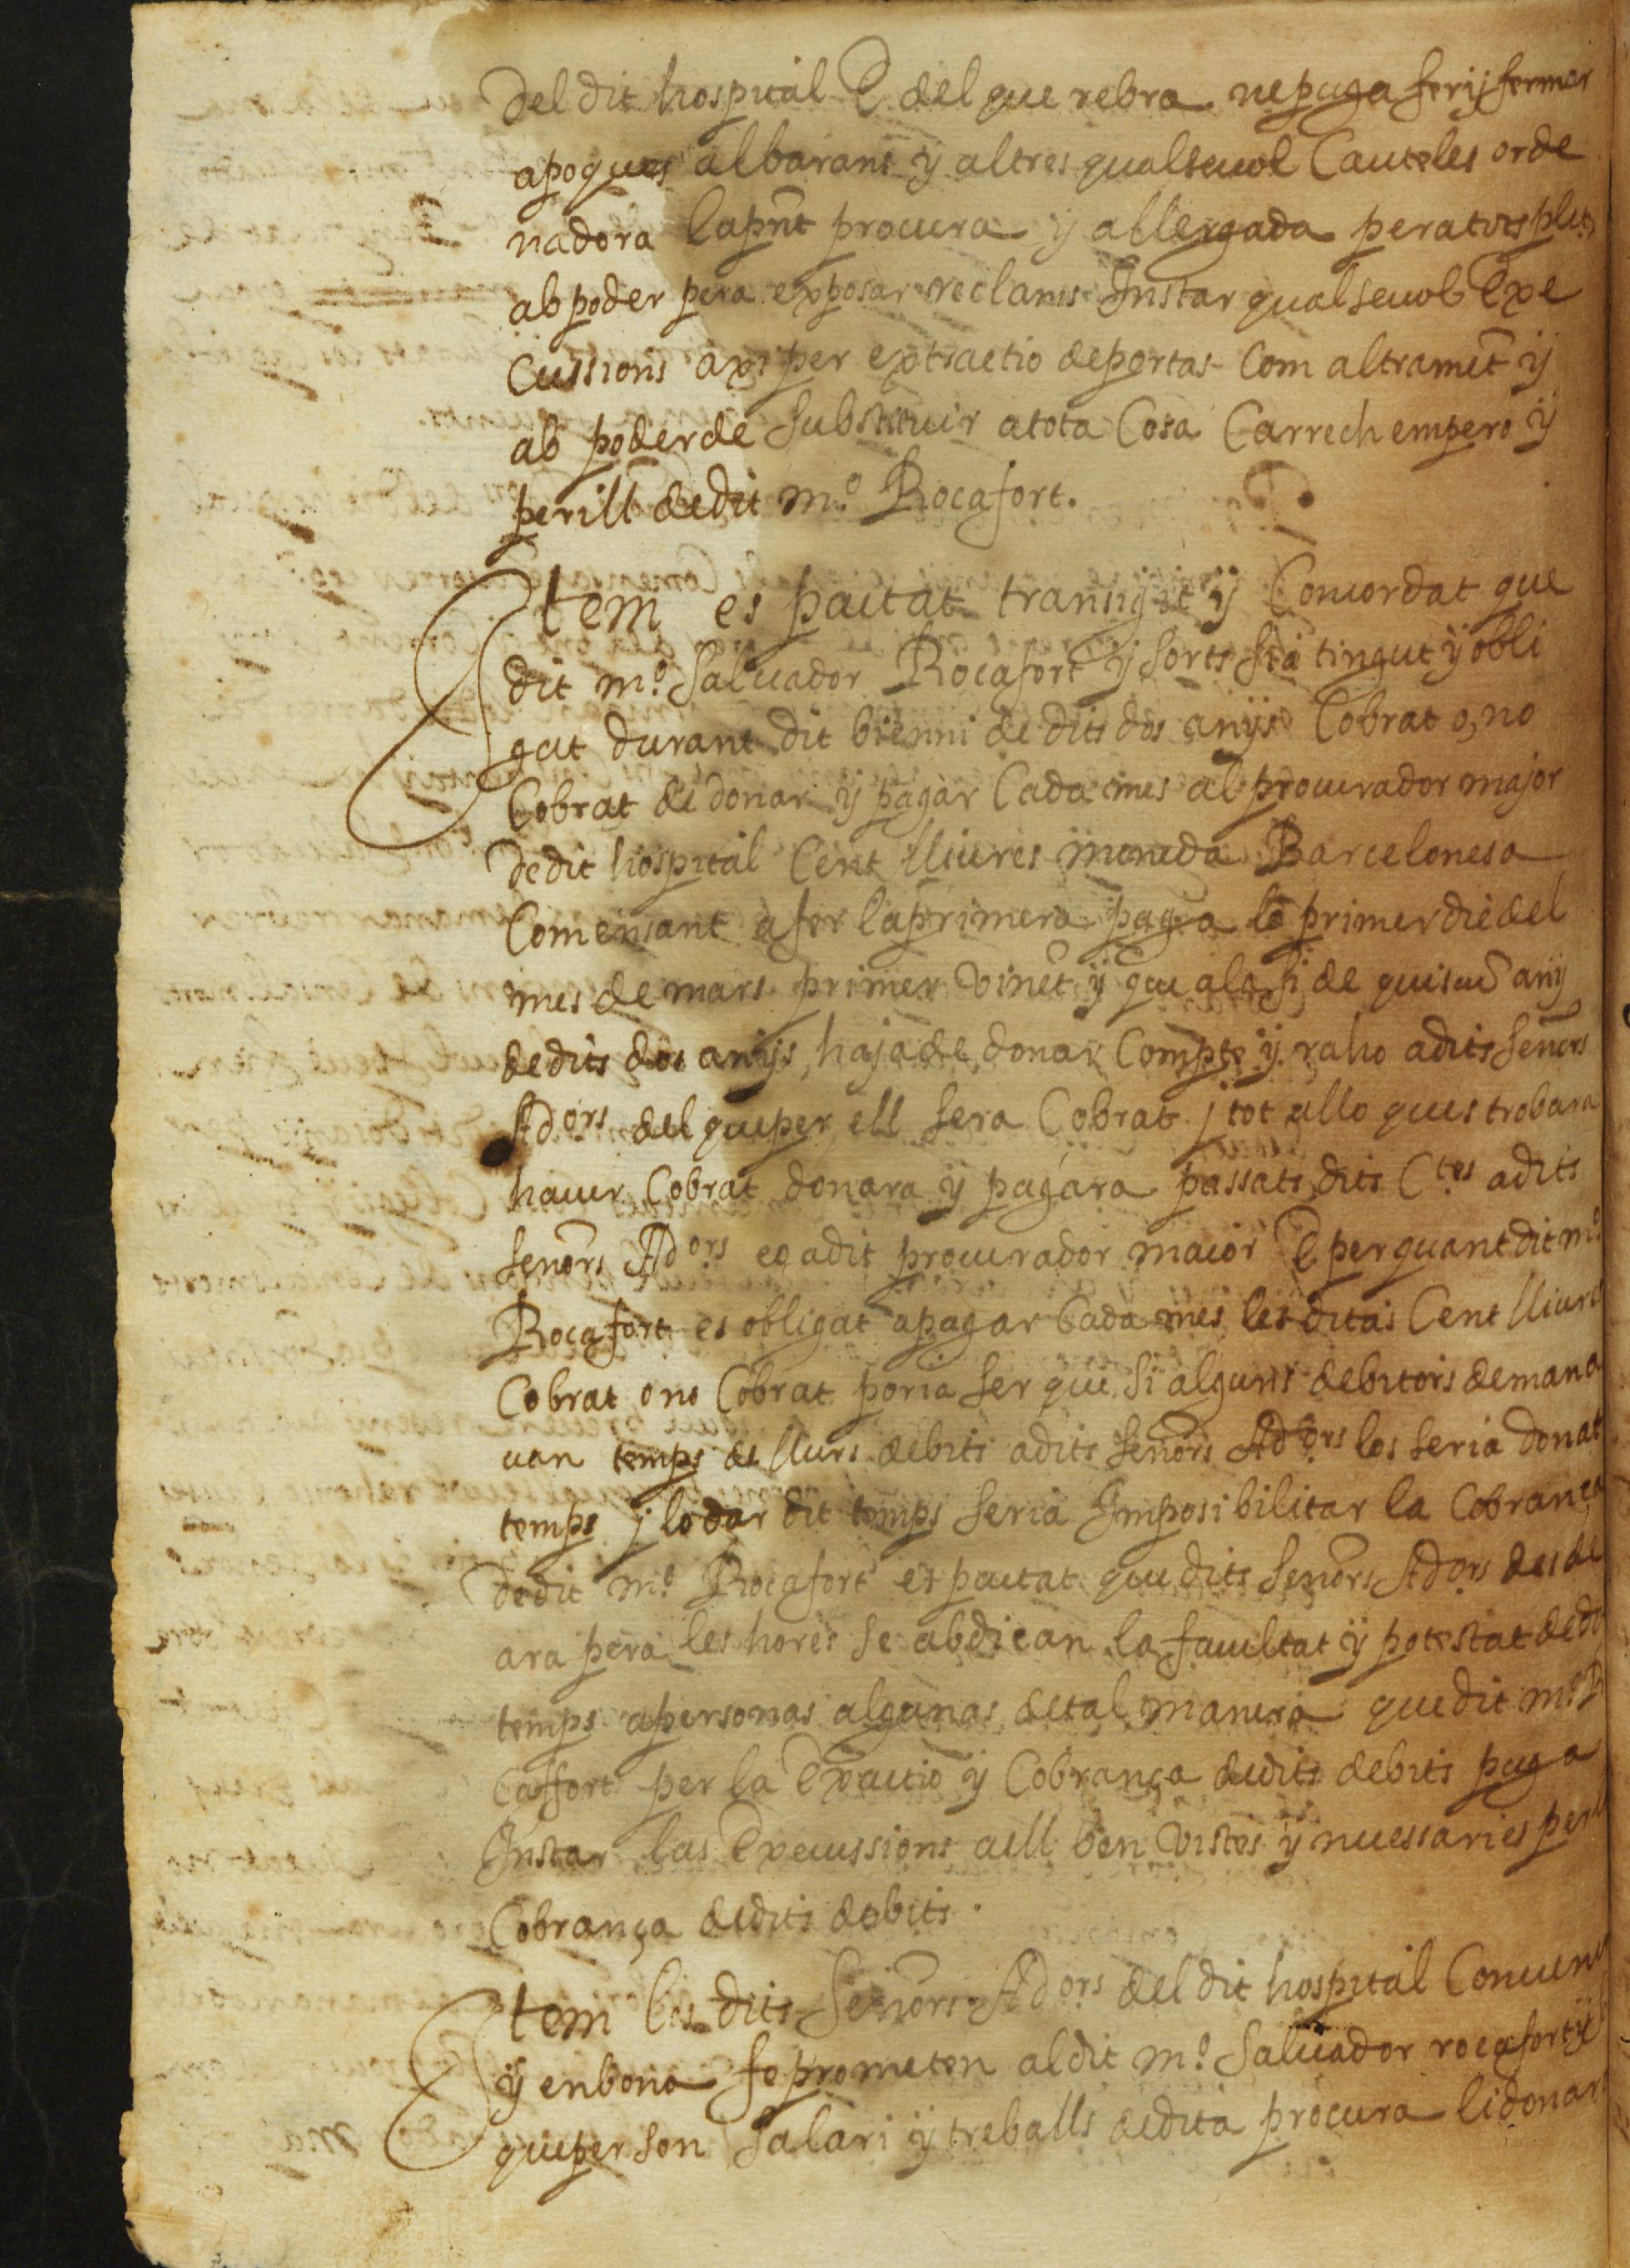 Del dit hospital E del que rebra ne puga fer ij fermar
apoques albarans ÿ altres qualseuol Cauteles orde
nadora lapñt procura ÿ allergada pera tots plets
ab poder pera exposar reclams Instar qualseuol Exe
Cussions axi per extractio de portas Com altramēt ÿ
ab poder de substituir a tota Cosa Carrech empero ÿ
perill de dit m.º Rocafort.
Item es pactat transigit ÿ Concordat que
dit m.º Saluador Rocafort ÿ sorts sia tingut ÿ obli
gat durant dit bienni de dits dos anÿs Cobrat o, no
Cobrat de donar ÿ pagar Cada mes al procurador major
De dit hospital Cent lliures moneda Barcelonesa
Comensant a fer la primera paga lo primer die del
mes de mars primer vinēt ÿ que a la fi de quiscū anÿ
de dits dos anÿs, haja de donar Compte ÿ raho a dits señors
Adors del que per ell sera Cobrat j tot allo ques trobara
hauer Cobrat donara ÿ pagara passats dits Ctes a dits
señors Adors eo a dit procurador maior E per quant dit m.º
Rocafort es obligat a pagar Cada mes les ditas Cent lliures
Cobrat o no Cobrat poria ser que si alguns debitors demana
uan temps de llurs debits a dits señors Adors los seria donat
temps j lo dar dit temps seria Imposibilitar la Cobrança
De dit m.º Rocafort es pactat que dits señors Adors des de
ara pera les hores se abdican la facultat ÿ potestat de do
temps a personas algunas de tal manera que dit m.º R
Caffort per la Exactio ÿ Cobrança de dits debits puga
Instar las Execussions a ell ben vistes ÿ necessaries per
Cobrança de dits debits.
Item los dits Señors Adors del dit hospital Conuen
ÿ en bona fe prometen al dit m.º Saluador rocafort ÿ
que per son Salari ÿ treballs de dita procura li donar